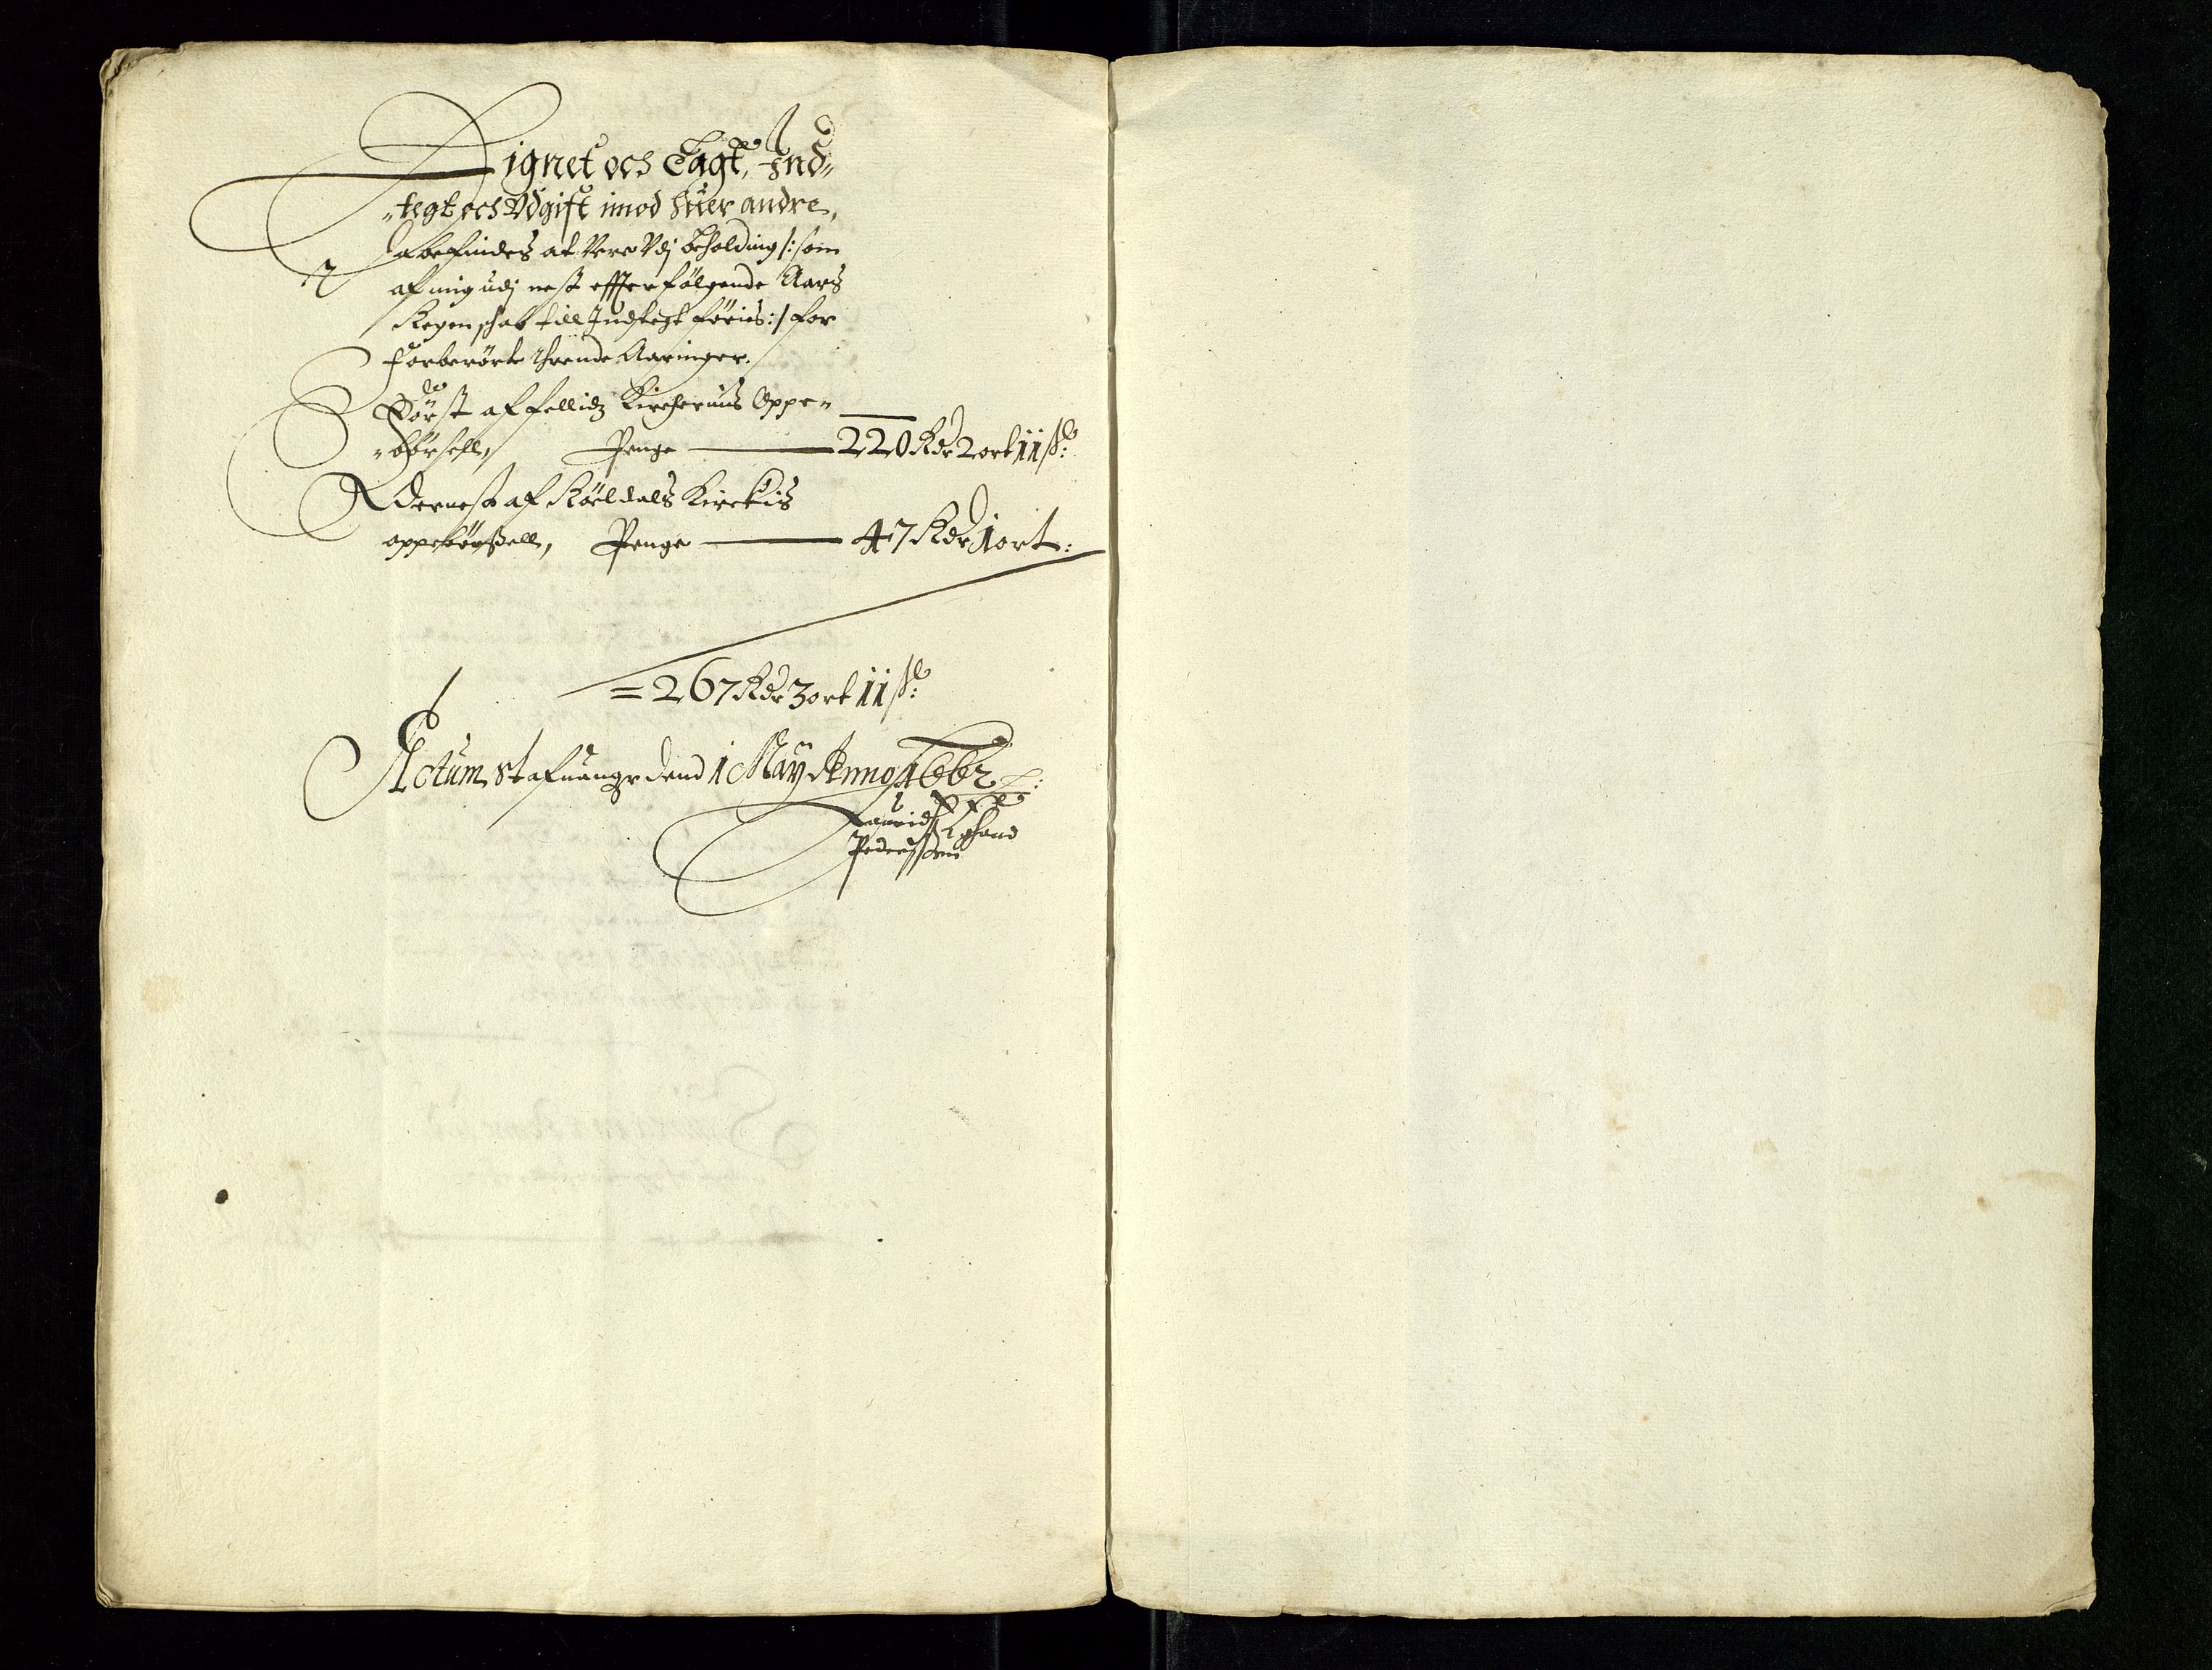 Lignet och Lagt, Ind„
„tegt och Vdgift imod huer andre,
da befindes at Vere Vdj Beholding /: som
af mig udj nest effter følgende Aars
Regenschab till Indtegt føris :/ for
forberørte thrende Aaringer.
Først af fellidz Kirchernis Oppe„
„børsell, Penge 220 Rdr 2 ort 11 ß:
Dernest af Röeldals Kirckis
oppebørßell, Penge 47 Rdr 1 ort:
= 267 Rdr 3 ort 11 ß:
Actum Stafuanger dend 1 May Anno 1662
Lauridtz
Pederssen